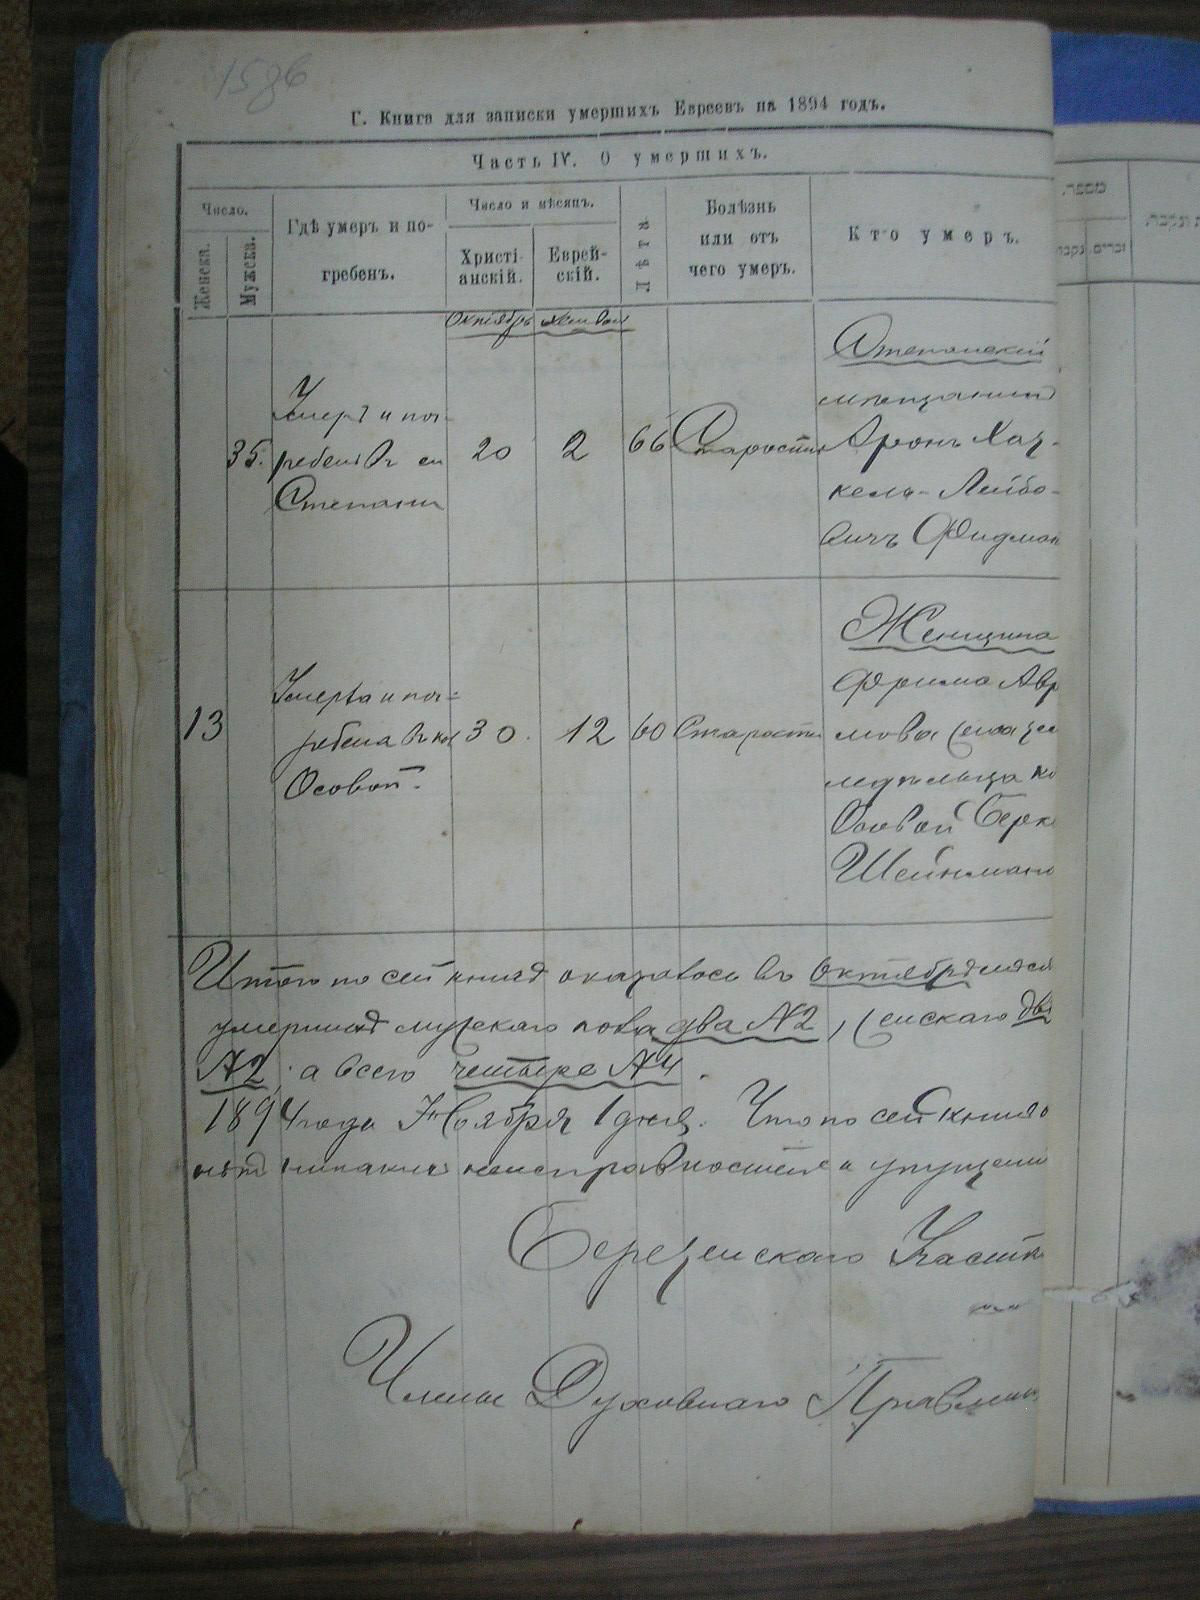 1586
Г. Книга для записки умершихъ Евреевъ на 1894 годъ.
Часть IV. О умершихъ.
Число.
Женска.
Мужска.
Гдѣ умеръ и по-
гребенъ.
Число и мѣсяцъ.
Христі-
анскій.
Еврей-
скій.
Лѣта
Болѣзнь
или отъ
чего умеръ.
Кто умеръ.
Октябрь
35.
Умеръ и пог-
ребенъ въ
Степани
20
2
66
Старости
Степанскій
мѣщанинъ
Аронъ Хац-
кель-Лейбо-
вичъ Фидман
13
Умерла и пог-
ребена въ кол
Осовой.
30.
12
60
Старости
Женщина
Фрима Авр
мова жена зем
ледѣльца ко
Осовой Берк
Шейнмано
Итого по сей книгѣ оказалось въ Октябрѣ
умершихъ мужскаго пола два №2, женскаго два
№2, а всего четыре №4.
1894 года Ноября 1 дня. Что по сей книгѣ
нѣтъ никакихъ неисправностей и упущен
Березенскаго Участк
Члены Духовнаго Правлен
מספר
זכרים
נקבות